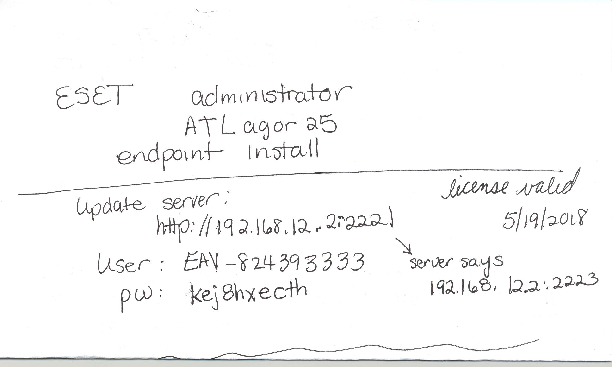 ESET administrator
ATLagor25
endpoint install
update server:
http://192.168.12.2:2221
user: EAV-824393333
pw: kej8hxecth
license valid
5/19/2018
server says
192.168.12.2:2223